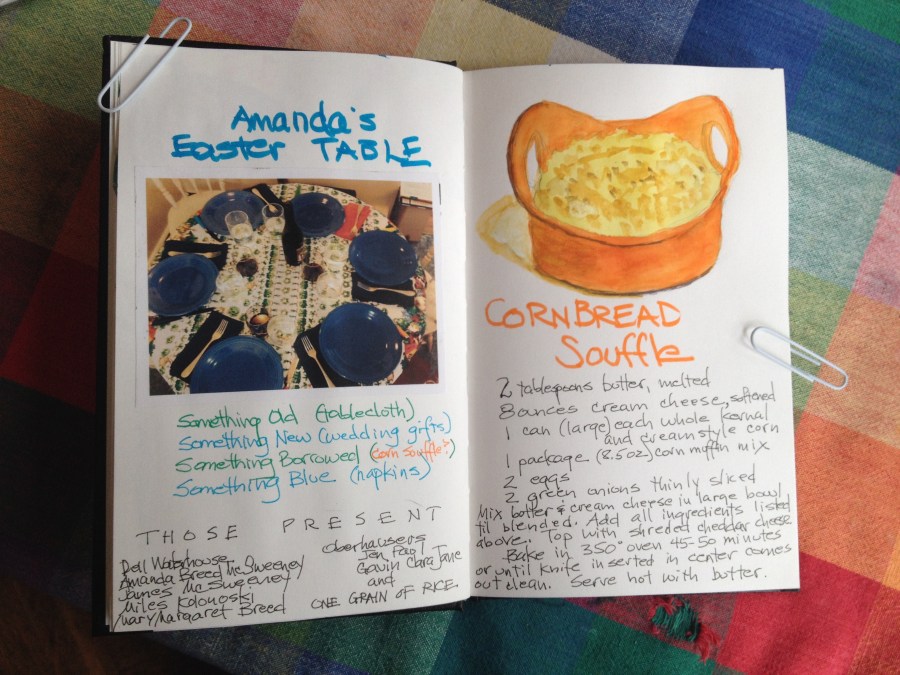 Amanda's
Easter TABLE
Something Old (tablecloth)
Something New (wedding gifts)
Something Borrowed (corn souffle?)
Something Blue (napkins)
THOSE PRESENT
Dell Waterhouse
Amanda Breed McSweeney
James McSweeney
Miles Kolonoski
Mary Margaret Breed
Oberhausers
Jen Paul
Gavin Clara Jane
and
ONE GRAIN OF RICE.
CORNBREAD
Souffle
2 tablespoons butter, melted
8 ounces cream cheese, softened
1 can (large) each whole kernal
and creamstyle corn
1 package (8.5oz) corn muffin mix
2 eggs
2 green onions thinly sliced
Mix butter & cream cheese in large bowl
til blended. Add all ingredients listed
above. Top with shreded cheddar cheese
Bake in 350° oven 45-50 minutes
or until knife inserted in center comes
out clean. Serve hot with butter.